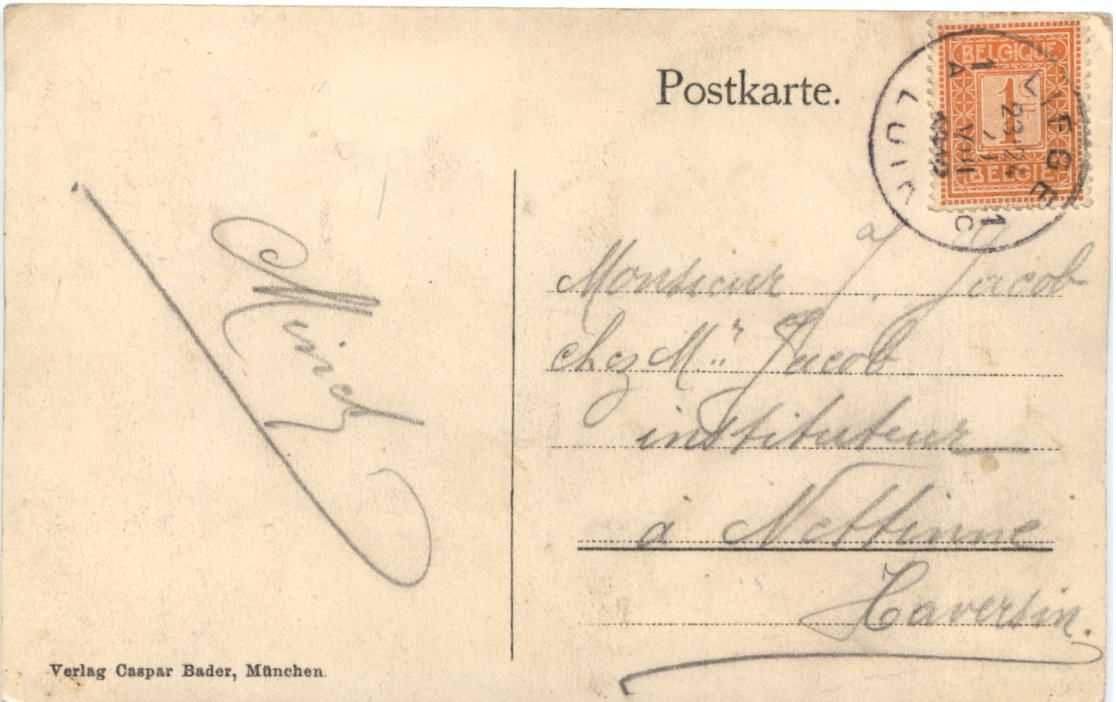 Postkarte.
BELGIQUE
1c
BELGIË
1 LIEGE 1
A LUIK C
23-24
VIII
Monsieur J. Jacob
chez Mr Jacob
instituteur
à Nettinne
Haversin.
Verlag Caspar Bader, München.